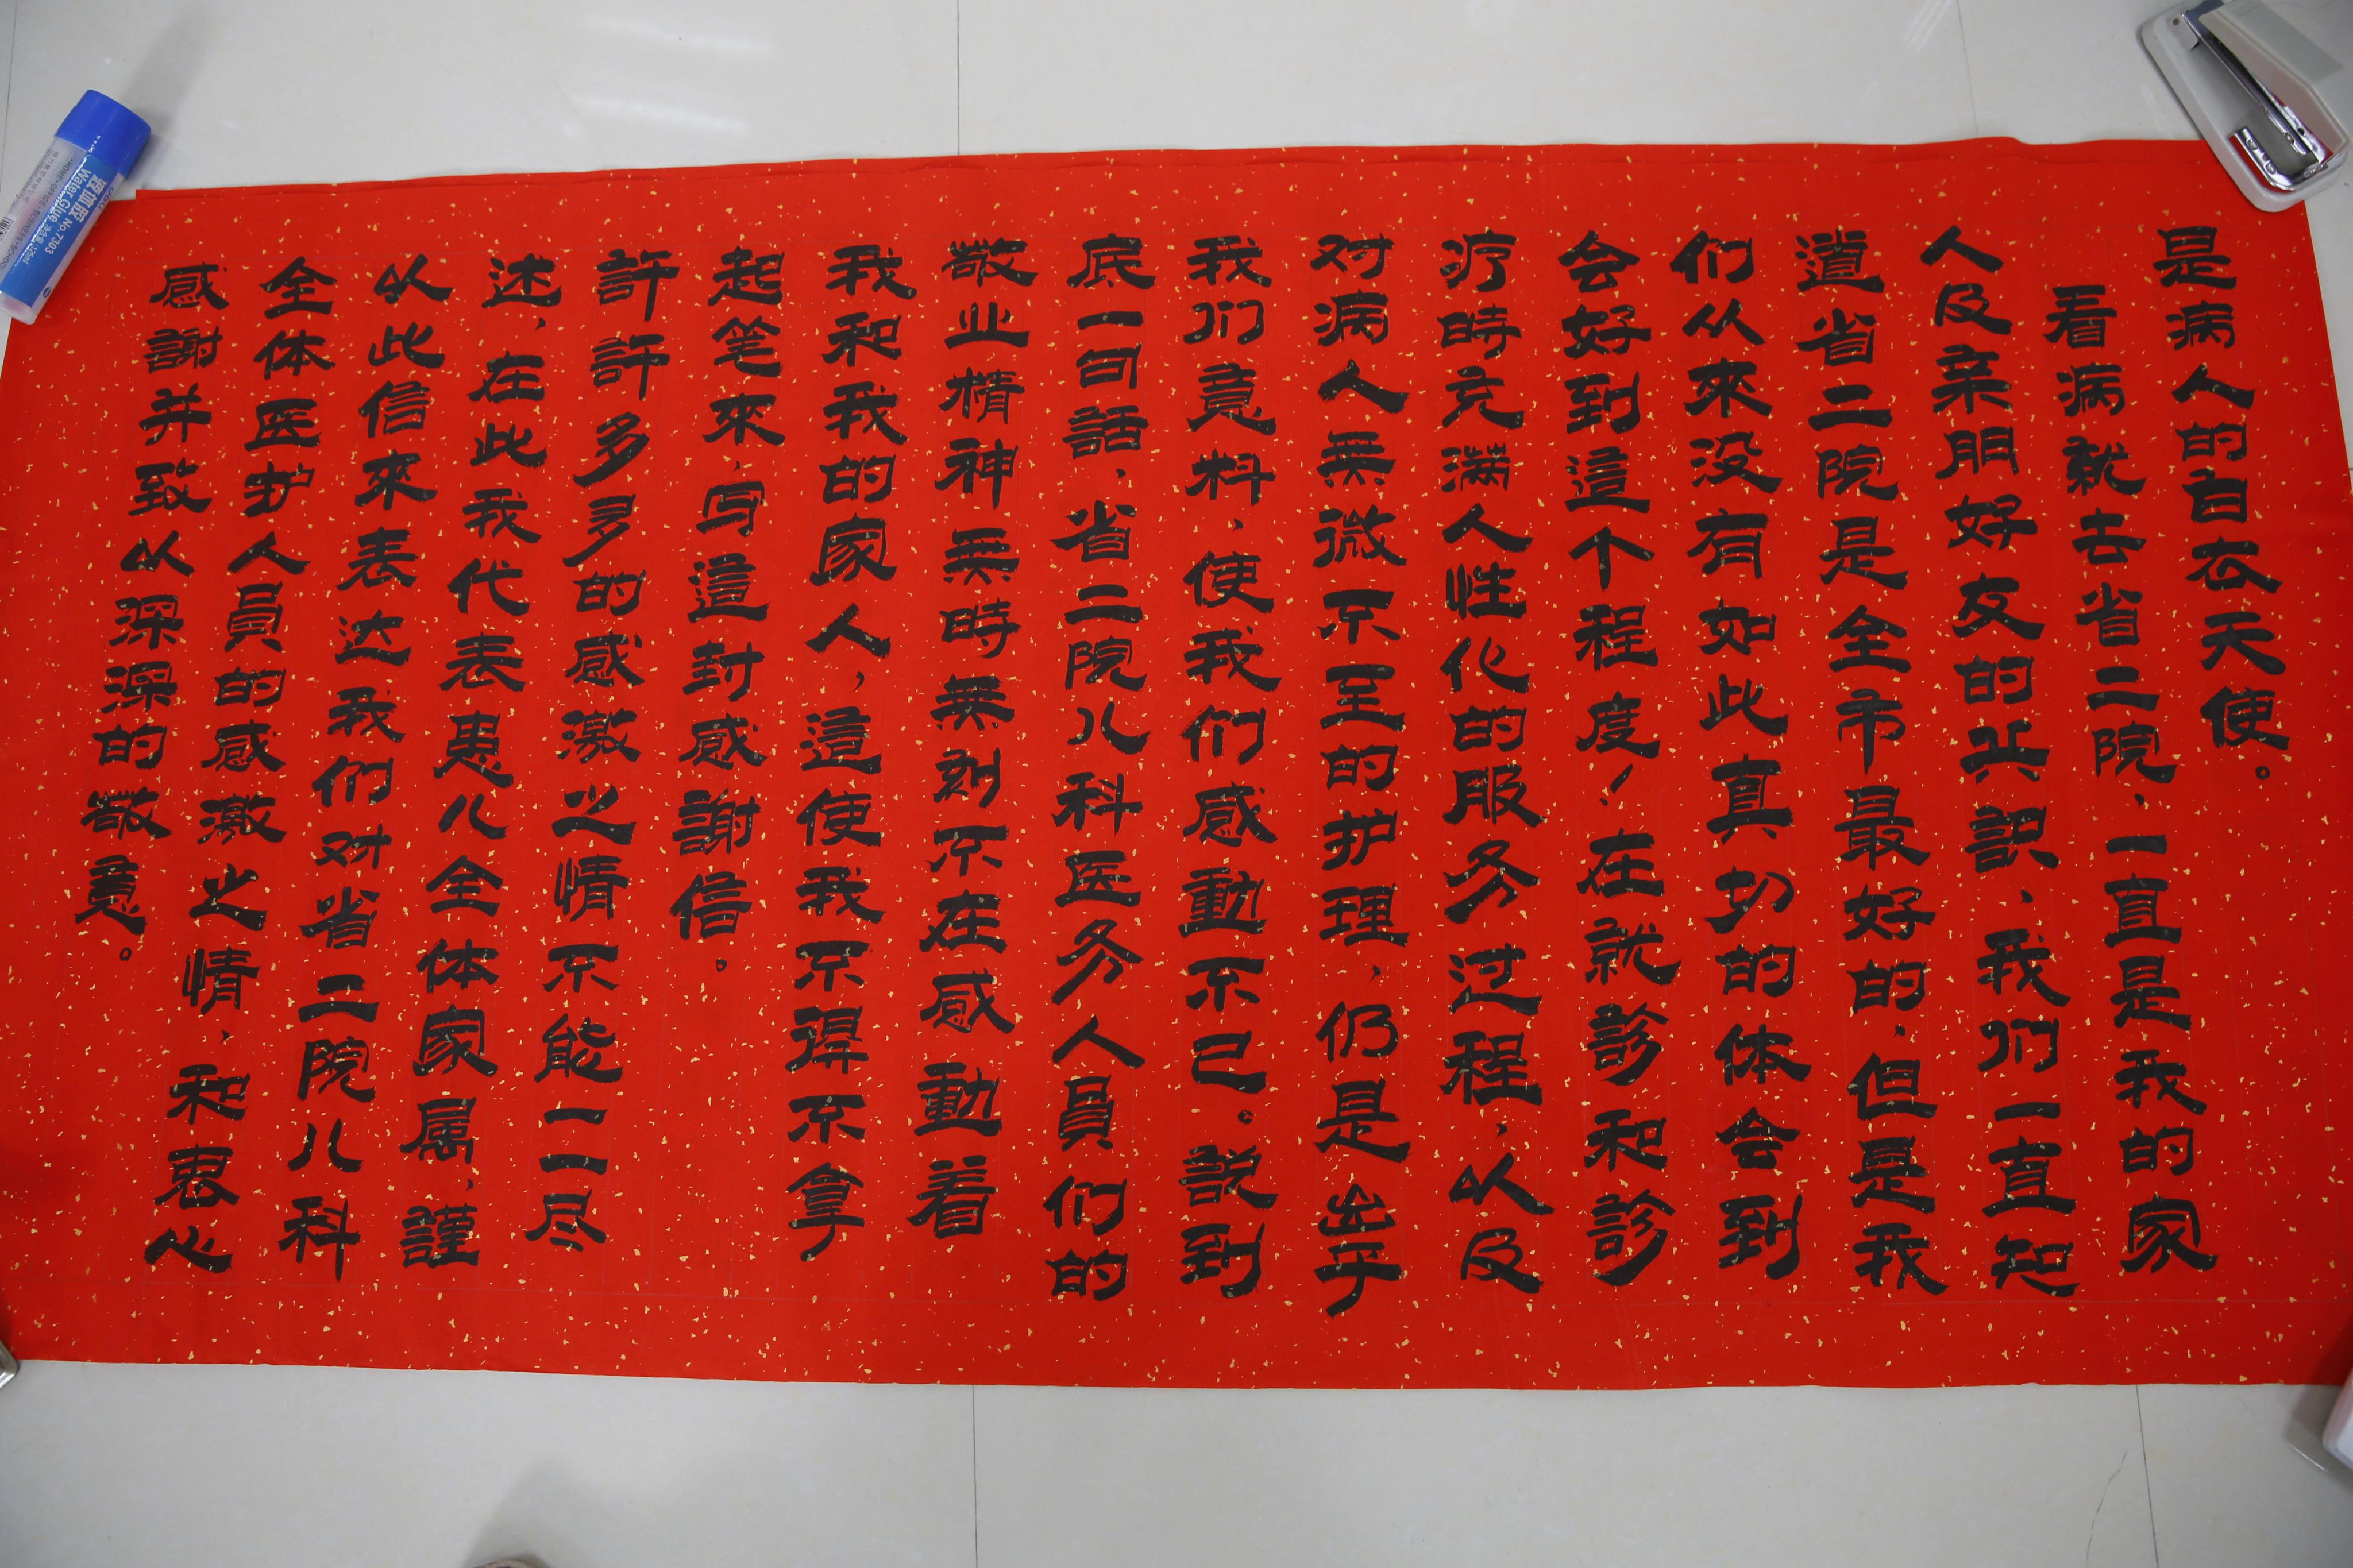 是病人的白衣天使。
看病就去省二院，一直是我的家
人及亲朋好友的共識，我们一直知
道省二院是全市最好的，但是我
们从來没有如此真切的体会到
会好到這个程度！在就診和診
疗時充满人性化的服务过程，以及
对病人無微不至的护理，仍是出乎
我们意料，使我们感動不已。説到
底一句話，省二院儿科医务人員们的
敬业精神無時無刻不在感動着
我和我的家人，這使我不得不拿
起笔來，写這封感謝信。
許許多多的感激之情不能一一尽
述，在此我代表患儿全体家属，謹
以此信來表达我们对省二院儿科
全体医护人員的感激之情，和衷心
感謝并致以深深的敬意。
液体胶
Water Glue No.7303